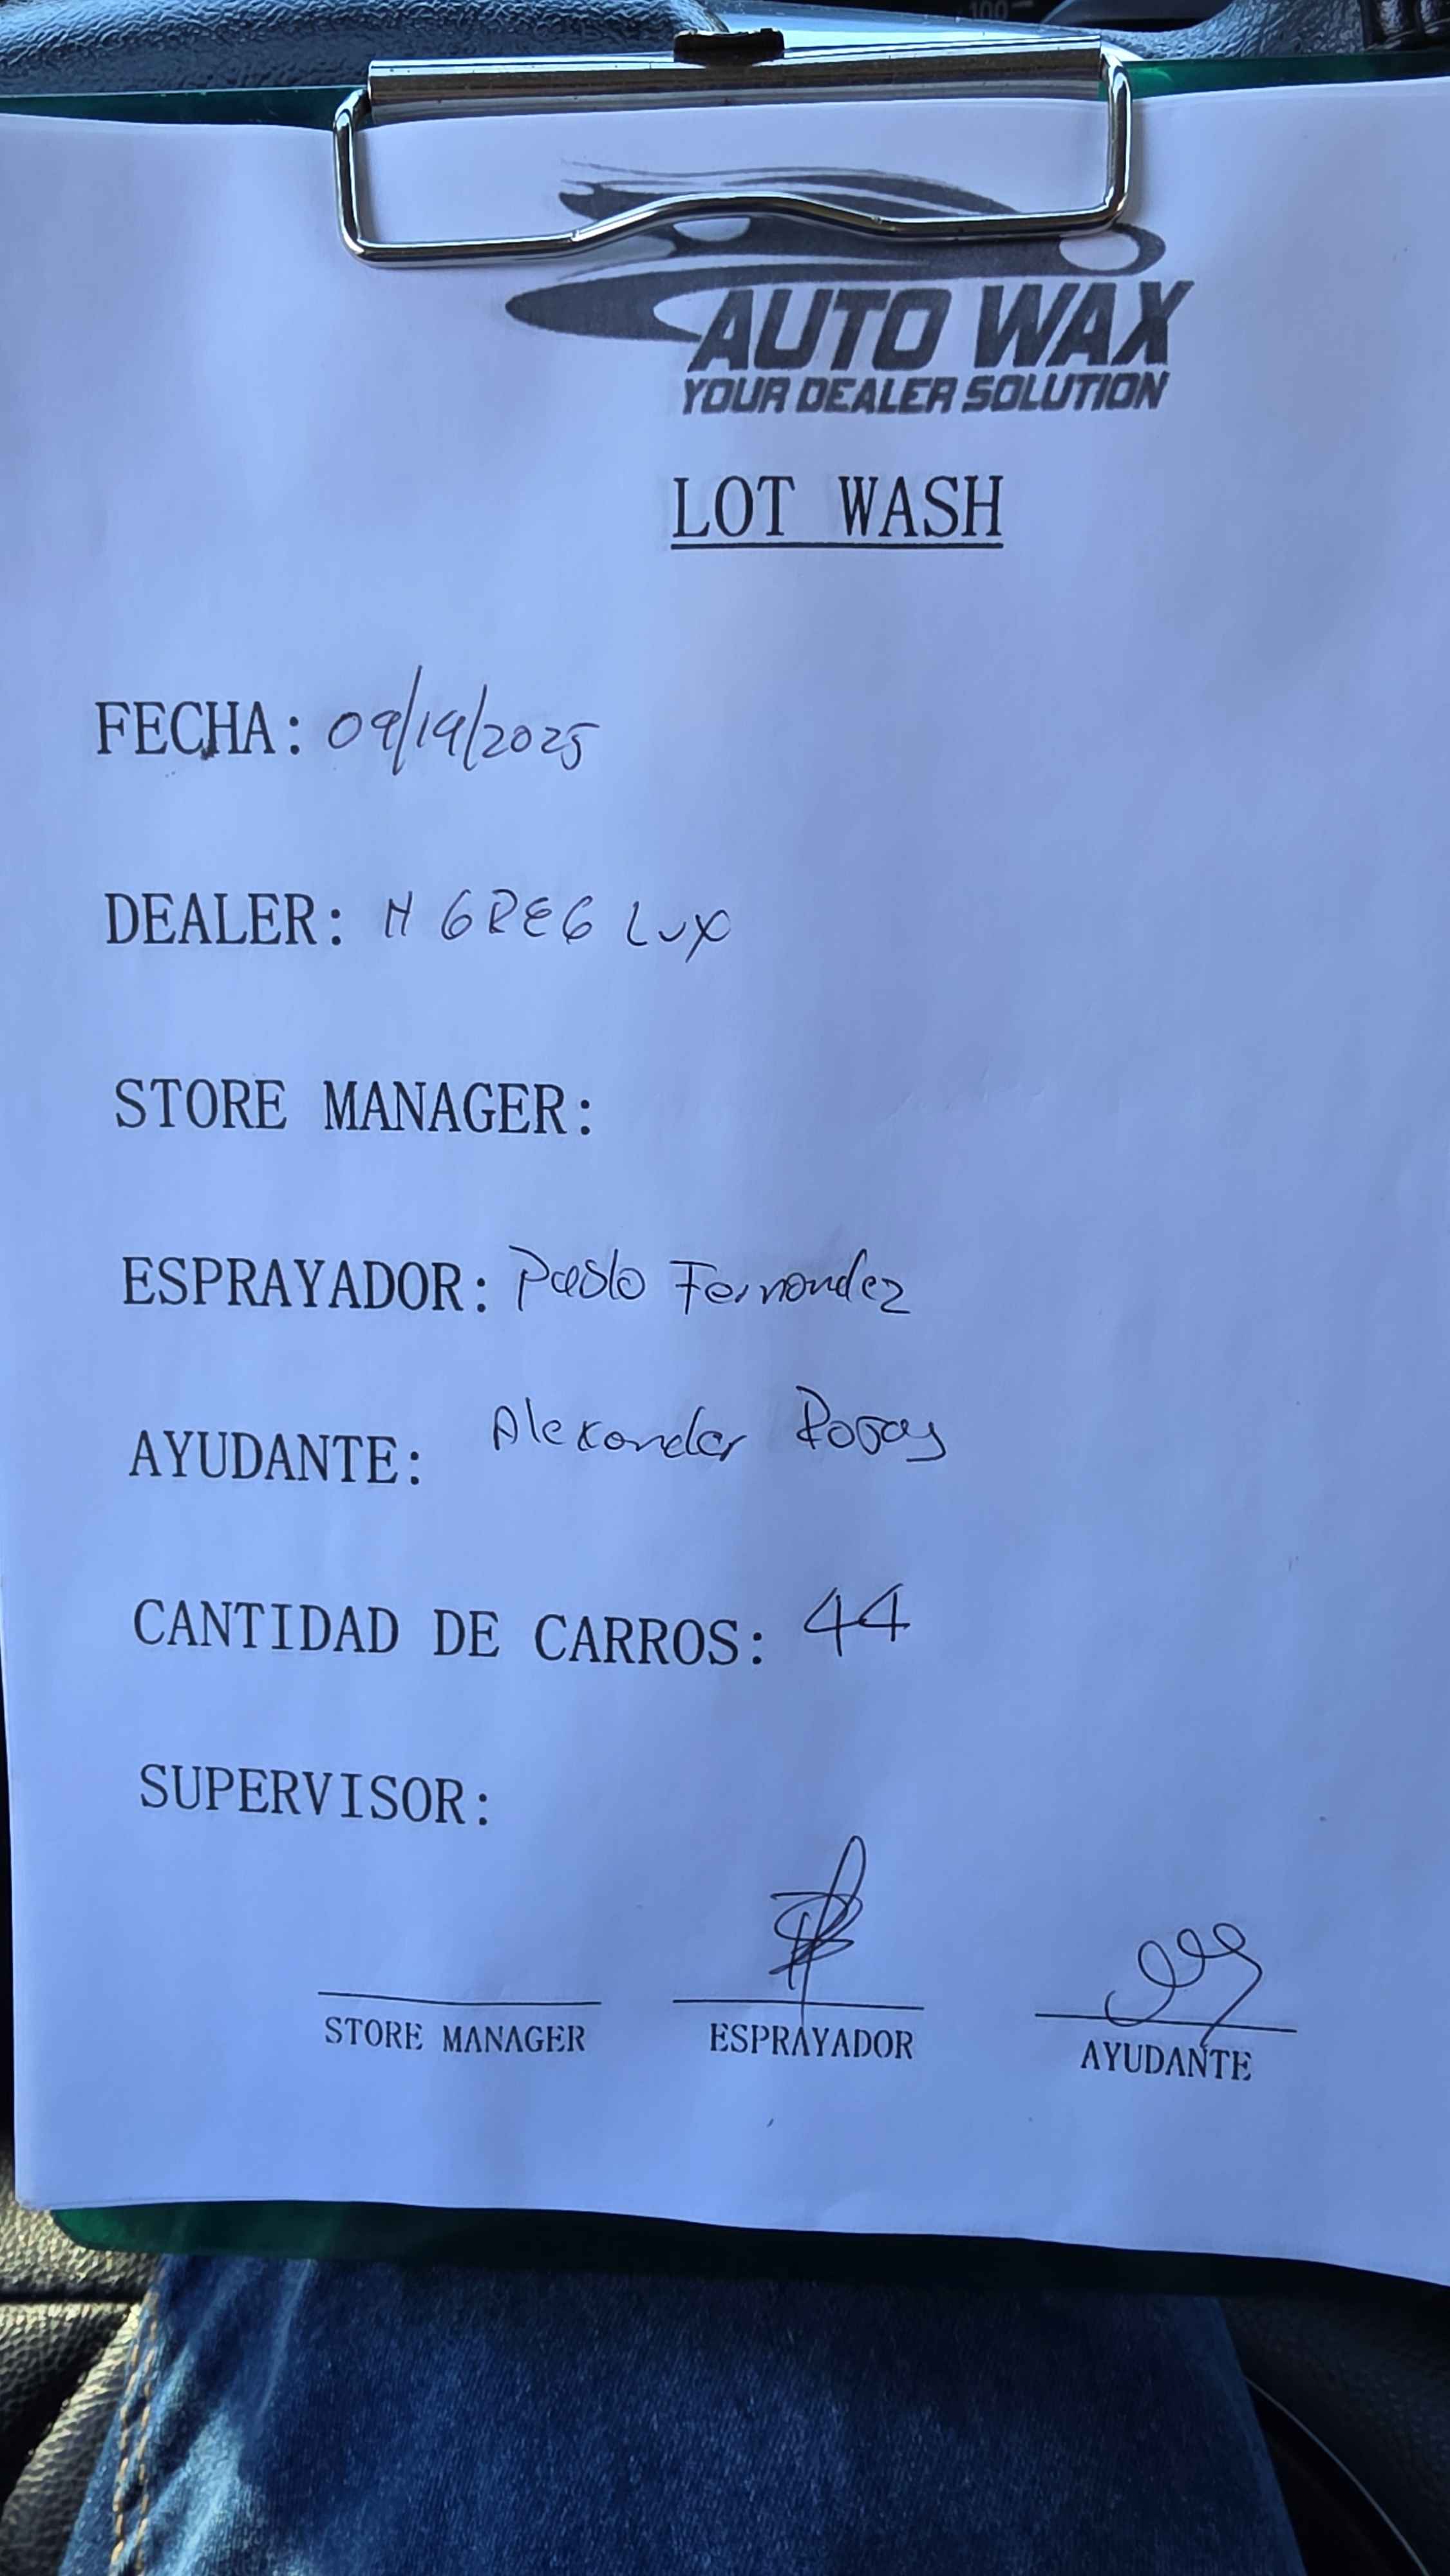 AUTO WAX
YOUR DEALER SOLUTION
LOT WASH
FECHA: 09/19/2025
DEALER: H GREG LUX
STORE MANAGER:
ESPRAYADOR: Pablo Fernandez
AYUDANTE: Alexander
CANTIDAD DE CARROS: 44
SUPERVISOR:
STORE MANAGER ESPRAYADOR AYUDANTE